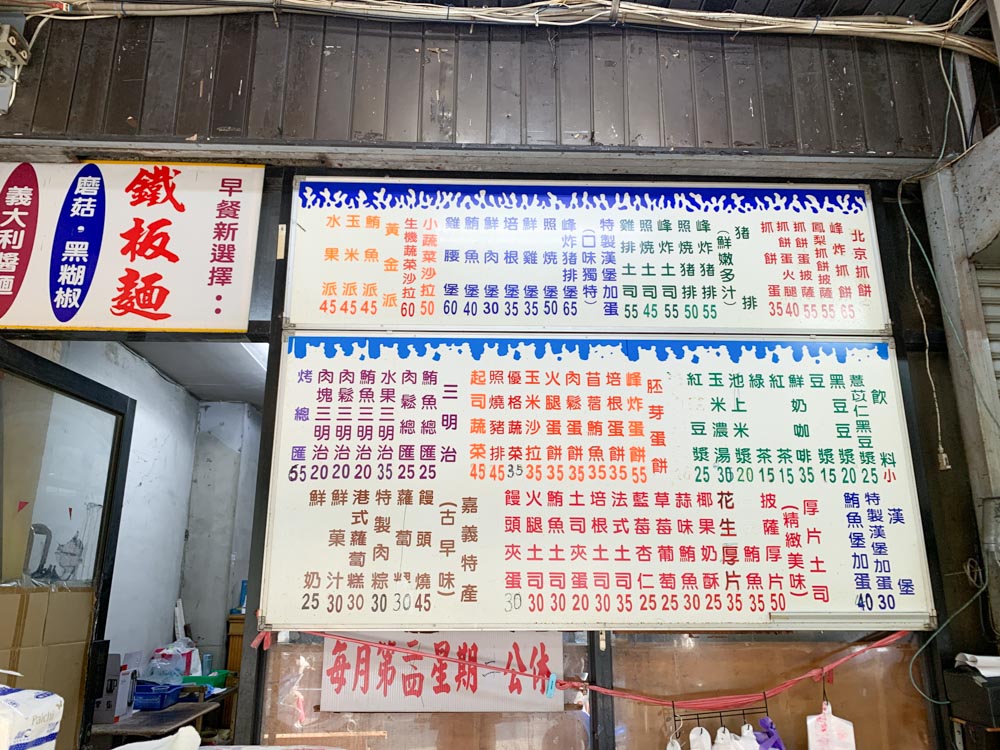 早餐新選擇：
鐵板麵
磨菇·黑糊椒
義大利醬
北京抓餅
峰炸抓餅 65
鳳梨抓餅披薩 55
抓餅蛋披薩 55
抓餅蛋火腿 40
抓餅蛋 35
豬排
(鮮嫩多汁)
峰炸豬排 55
照燒豬排 50
峰炸土司 55
照燒土司 45
雞排土司 55
特製漢堡加蛋
(口味獨特)
峰炸猪排堡 65
照燒堡 50
鮮雞堡 35
培根堡 35
鮮肉堡 30
鮪魚堡 40
雞腰堡 60
小蔬菜沙拉 50
生機蔬菜沙拉 60
黃金派
鮪魚派 45
玉米派 45
水果派 45
飲料 小
薏苡仁黑豆漿 25
黑豆漿 20
豆漿 15
鮮奶咖啡 35
紅茶 15
綠茶 15
池上米漿 20
玉米濃湯 30
紅豆漿 25
胚芽蛋餅
峰炸蛋餅 55
培根蛋餅 35
苜蓿鮪魚 35
肉鬆蛋餅 35
火腿蛋餅 35
玉米蛋餅 35
優格蔬沙拉 35
照燒豬排 45
起司蔬菜 45
三明治
鮪魚總匯 25
肉鬆總匯 25
水果三明治 35
鮪魚三明治 20
肉鬆三明治 20
肉塊三明治 20
烤總匯 55
漢堡
特製漢堡加蛋 30
鮪魚堡加蛋 40
厚片土司
(精緻美味)
披薩厚片 50
鮪魚 35
花生厚片 35
椰果奶酥 25
蒜味鮪魚 30
草莓葡萄 25
藍莓杏仁 25
法式土司 35
培根土司 30
土司夾蛋 20
鮪魚土司 30
火腿土司 30
饅頭夾蛋 30
嘉義特產
(古早味)
饅頭燒 45
蘿蔔粿 30
特製肉粽 30
港式蘿蔔糕 30
鮮菓汁 30
鮮奶 25
每月第二四星期一公休